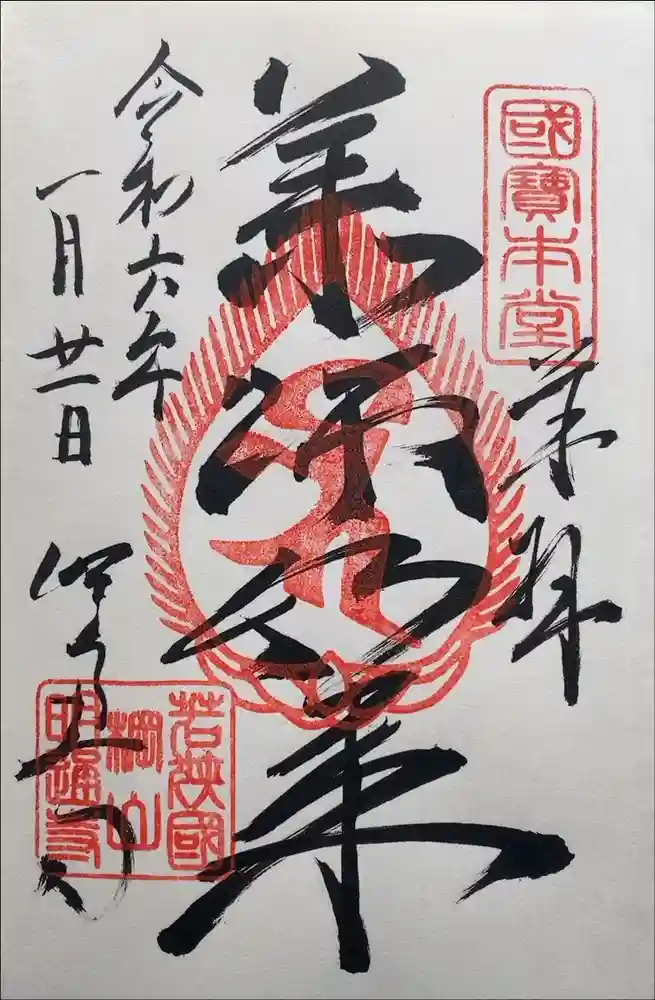 國寶本堂
奉拝
薬師如来
令和六年
一月廿一日
明通寺
若狹國
棡山
明通寺